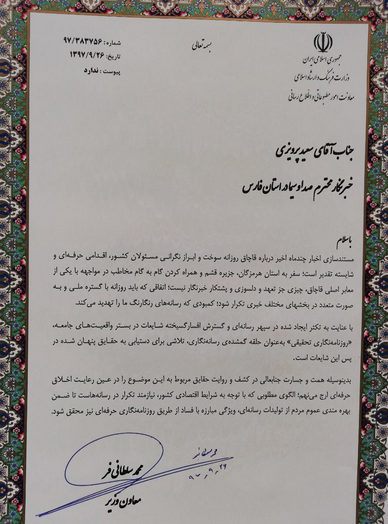 بسمه تعالی
جمهوری اسلامی ایران
وزارت فرهنگ و ارشاد اسلامی
معاونت امور مطبوعاتی و اطلاع رسانی
شماره: ۹۷/۳۸۳۷۵۶
تاریخ: ۱۳۹۷/۹/۲۶
پیوست: ندارد
جناب آقای سعید پرویزی
خبرنگار محترم صدا و سیما در استان فارس
با سلام
مستندسازی اخبار چندماه اخیر درباره قاچاق روزانه سوخت و ابراز نگرانی مسئولان کشور، اقدامی حرفه‌ای و
شایسته تقدیر است؛ سفر به استان هرمزگان، جزیره قشم و همراه کردن گام به گام مخاطب در مواجهه با یکی از
معابر اصلی قاچاق، چیزی جز تعهد و دلسوزی و پشتکار خبرنگار نیست؛ اتفاقی که باید روزانه با گستره ملی و به
صورت متعدد در بخشهای مختلف خبری تکرار شود؛ کمبودی که رسانه‌های رنگارنگ ما را تهدید می‌کند.
با عنایت به تکثر ایجاد شده در سپهر رسانه‌ای و گسترش افسارگسیخته شایعات در بستر واقعیت‌های جامعه،
«روزنامه‌نگاری تحقیقی» به‌عنوان حلقه گمشده‌ی رسانه‌نگاری، تلاشی برای دستیابی به حقایق پنهان شده در
پس این شایعات است.
بدینوسیله همت و جسارت جنابعالی در کشف و روایت حقایق مربوط به این موضوع را در عین رعایت اخلاق
حرفه‌ای ارج می‌نهم؛ الگوی مطلوبی که با توجه به شرایط اقتصادی کشور، نیازمند تکرار در رسانه‌هاست تا ضمن
بهره مندی عموم مردم از تولیدات رسانه‌ای، ویژگی مبارزه با فساد از طریق روزنامه‌نگاری حرفه‌ای نیز محقق شود.
محمد سلطانی فر
معاون وزیر